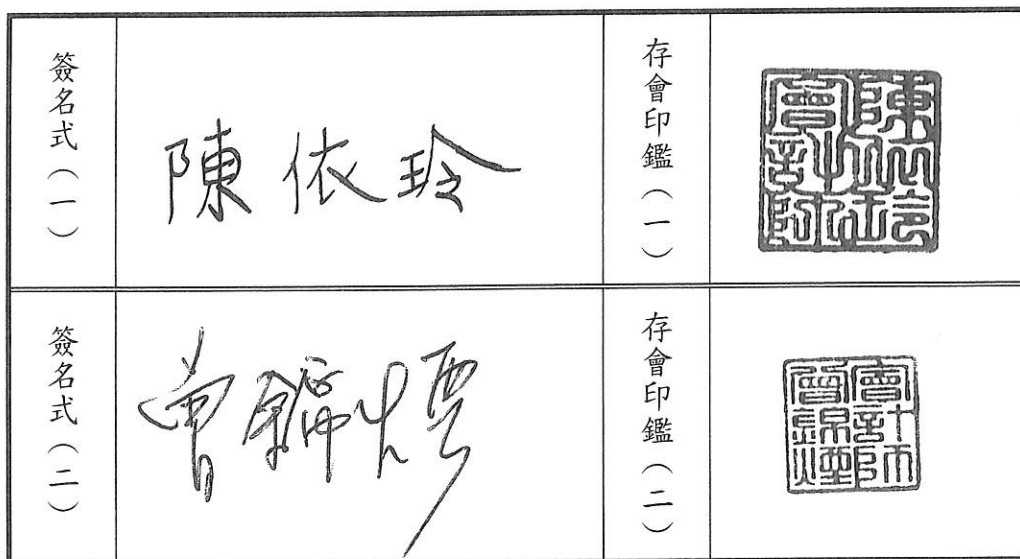 簽名式（一）
陳依玲
存會印鑑（一）
陳依玲
會計師
簽名式（二）
曾錦煙
存會印鑑（二）
會計師
曾錦煙